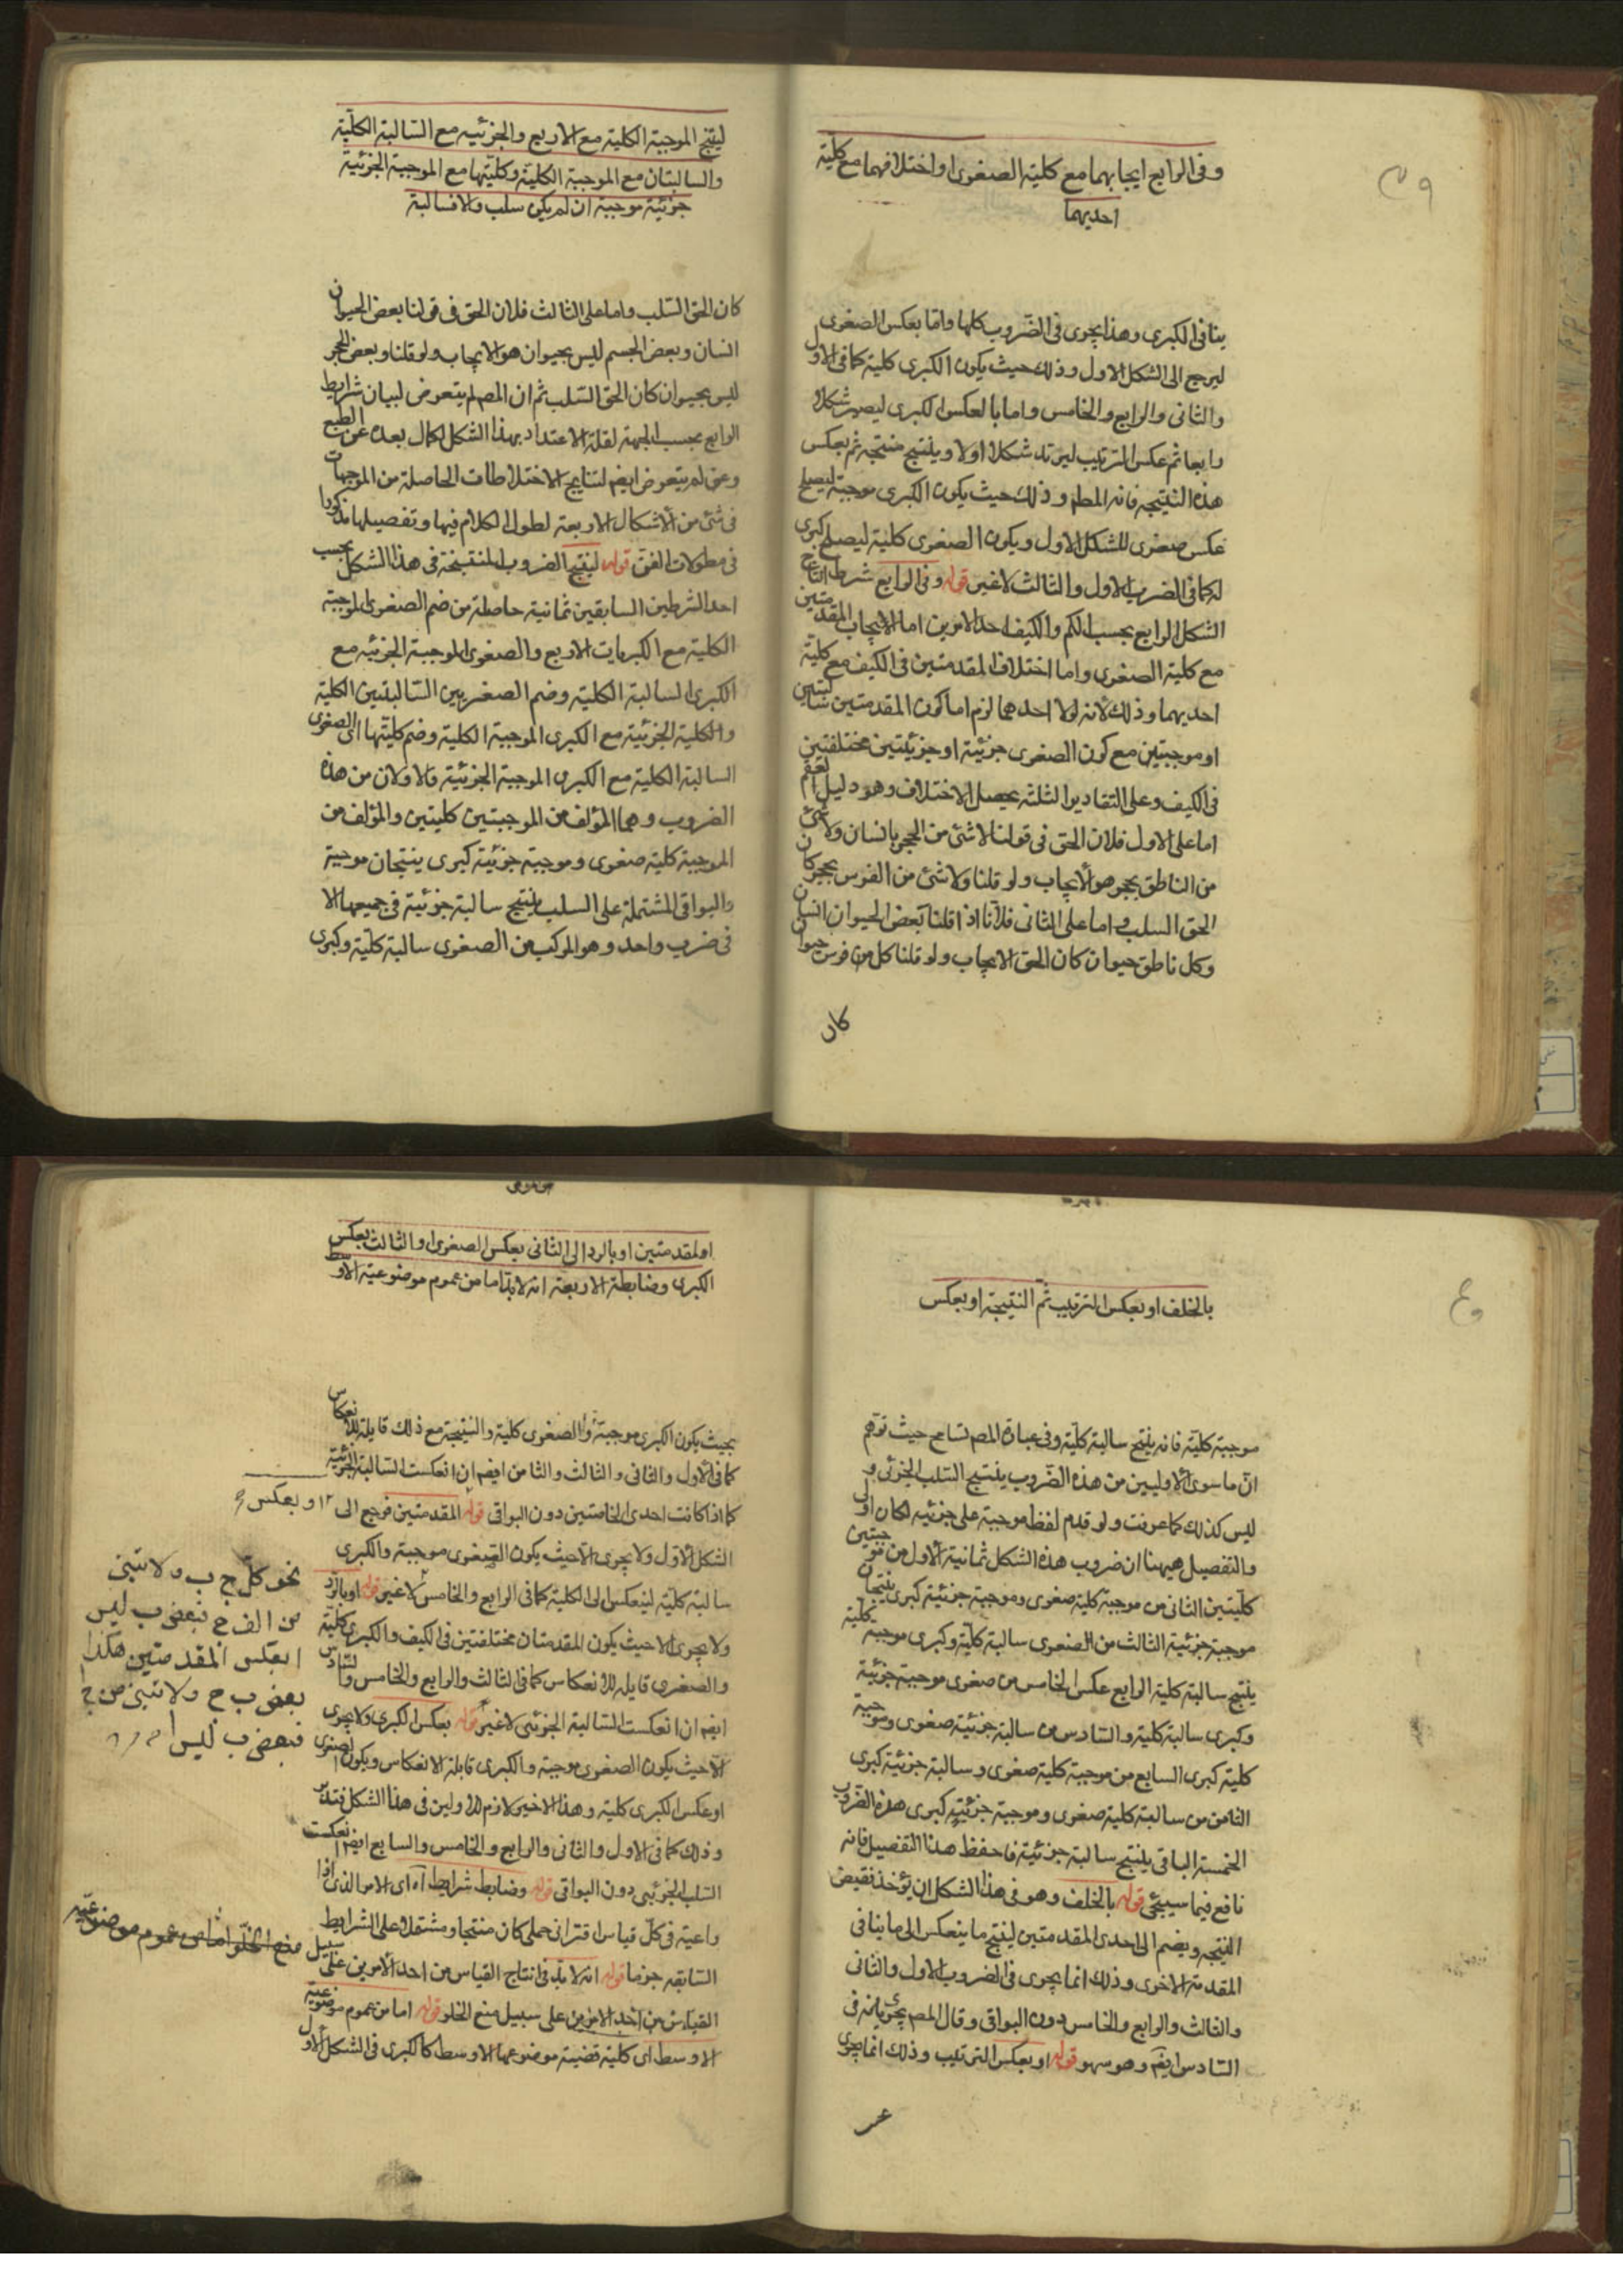 وفى الرابع ايجابهما مع كلية الصغرى او اختلافهما مع كلية
احديهما
ينافى الكبرى وهذا يجرى فى الضروب كلها واما بعكس الصغرى
ليرجع الى الشكل الاول وذلك حيث يكون الكبرى كلية كما فى الاول
والثانى والرابع والخامس واما بالعكس الكبرى ليصير شكلا
رابعا ثم عكس الترتيب ليرتد شكلا اولا وينتج نتيجة ثم يعكس
هذه النتيجة فانه المطم وذلك حيث يكون الكبرى موجبة ليصلح
عكس صغرى للشكل الاول ويكون الصغرى كلية ليصلح كبرى
له كما فى الضرب الاول والثالث لاغير قوله وفى الرابع شرط انتاج
الشكل الرابع بحسب الكم والكيف احد الامرين اما الايجاب المقدمتين
مع كلية الصغرى واما اختلاف المقدمتين فى الكيف مع كلية
احديهما وذلك لانه لولا احدهما لزم اما كون المقدمتين سالبتين
او موجبتين مع كون الصغرى جزئية او جزئيتين مختلفتين
فى الكيف وعلى التقادير الثلثة يحصل الاختلاف وهو دليل العقم
اما على الاول فلان الحق فى قولنا لا شئ من الحجر بانسان ولا شئ
من الناطق بحجر هو الايجاب ولو قلنا ولا شئ من الفرس بحجر كان
الحق السلب واما على الثانى فلانا اذا قلنا بعض الحيوان انسان
وكل ناطق حيوان كان الحق الايجاب ولو قلنا كل من فرس حيوان
كان
لينتج الموجبة الكلية مع الاربع والجزئيه مع السالبة الكلية
والسالبتان مع الموجبة الكلية وكليتها مع الموجبة الجزئية
جزئية موجبة ان لم يكن سلب والا فسالبة
كان الحق السلب واما على الثالث فلان الحق فى قولنا بعض الحيوان
انسان وبعض الجسم ليس بحيوان هو الايجاب ولو قلنا وبعض الحجر
ليس بحيوان كان الحق السلب ثم ان المصـ لم يتعرض لبيان شرايط
الرابع بحسب الجهة لقلة الاعتداد بهذا الشكل لكمال بعده عن الطبع
ولم يتعرض ايضـ لنتايج الاختلاطات الحاصلة من الموجهات
فى شئ من الاشكال الاربعة لطول الكلام فيها وتفصيلها مذكور
فى مطولات الفن قوله لينتج الضروب المنتجة فى هذا الشكل بحسب
احد الشرطين السابقين ثمانية حاصلة من ضم الصغرى الموجبة
الكلية مع الكبريات الاربع والصغرى الموجبة الجزئيه مع
الكبرى السالبة الكلية وضم الصغريين السالبتين الكلية
والكلية الجزئية مع الكبرى الموجبة الكلية وضم كليتها الى الصغرى
السالبة الكلية مع الكبرى الموجبة الجزئية فالاولان من هذه
الضروب وهما المؤلف من الموجبتين كليتين والمؤلف من
الموجبة كلية صغرى وموجبة جزئية كبرى ينتجان موجبة
والبواقى المشتملة على السلب ينتج سالبة جزئية فى جميعها الا
فى ضرب واحد وهو المركب من الصغرى سالبة كلية وكبرى
بالخلف او بعكس الترتيب ثم النتيجة او بعكس
موجبة كلية فانه ينتج سالبة كلية وفى عبارة المصـ تسامح حيث توهم
ان ما سوى الاوليين من هذه الضروب ينتج السلب الجزئى و
ليس كذلك كما عرفت ولو قدم لفظ موجبة على جزئيه لكان اولى
والتفصيل هيهنا ان ضروب هذه الشكل ثمانية الاول من موجبتين
كليتين الثانى من موجبة كلية صغرى وموجبة جزئية كبرى ينتجان
موجبة جزئية الثالث من الصغرى سالبة كلية وكبرى موجبه كلية
ينتج سالبة كلية الرابع عكس الخامس من صغرى موجبة جزئية
وكبرى سالبة كلية والسادس من سالبة جزئية صغرى وموجبة
كلية كبرى السابع من موجبة كلية صغرى وسالبة جزئية كبرى
الثامن من سالبة كلية صغرى وموجبة جزئية كبرى هذه الضروب
الخمسة الباقى ينتج سالبة جزئية فاحفظ هذا التفصيل فانه
نافع فيما سيجئ قوله بالخلف وهو فى هذا الشكل ان يؤخذ نقيض
النتيجه ويضم الى احدى المقدمتين لينتج ما ينعكس الى ما ينافى
المقدمة الاخرى وذلك انما يجرى فى الضروب الاول والثانى
والثالث والرابع والخامس دون البواقى وقال المصـ بجريانه فى
السادس ايضـ وهو سهو قوله او بعكس الترتيب وذلك انما يجرى
او المقدمتين او بالرد الى الثانى بعكس الصغرى او الثالث بعكس
الكبرى وضابطة الاربعة انه لابد اما من عموم موضوعية الاوسط
بحيث يكون الكبرى موجبة والصغرى كلية والنتيجة مع ذلك قابلة للانعكاس
كما فى الاول والثانى والثالث والثامن ايضـ ان انعكست السالبة الجزئية
كما اذا كانت احدى الخاصتين دون البواقى قوله المقدمتين فرجع الى
الشكل الاول ولا يجرى الا حيث يكون الصغرى موجبة والكبرى
سالبة كلية لينعكس الى الكلية كما فى الرابع والخامس لاغير قوله او بالرد
ولا يجرى الا حيث يكون المقدمتان مختلفتين فى الكيف والكبرى كلية
والصغرى قابله للانعكاس كما فى الثالث والرابع والخامس والسادس
ايضـ ان انعكست السالبة الجزئى لاغير قوله بعكس الكبرى ولا يجرى
الا حيث يكون الصغرى موجبة والكبرى قابلة الانعكاس ويكون الصغرى
او عكس الكبرى كلية وهذا الاخير لازم للاولين فى هذا الشكل فتدبر
وذلك كما فى الاول والثانى والرابع والخامس والسابع ايضـ انعكست
السلب الجزئى دون البواقى قوله وضابط شرايط اه اى الامر الذى اذا
راعيته فى كل قياس اقترانى حملى كان منتجا ومشتملا على الشرايط
السابقه جزما قوله انه لابد فى انتاج القياس من احد الامرين على سبيل
القياس من احد الامرين على سبيل منع الخلو قوله اما من عموم موضوعية
الاوسط اى كلية قضية موضوعها الاوسط كالكبرى فى الشكل الاول
او بعكس
نحو كل ج ب ولا شئ
من الف ج فبعض ب ليس
ا بعكس المقدمتين هكذا
بعض ب ج ولا شئ من ج ا
فبعض ب ليس ا
منع الخلو اما من عموم موضوعيه